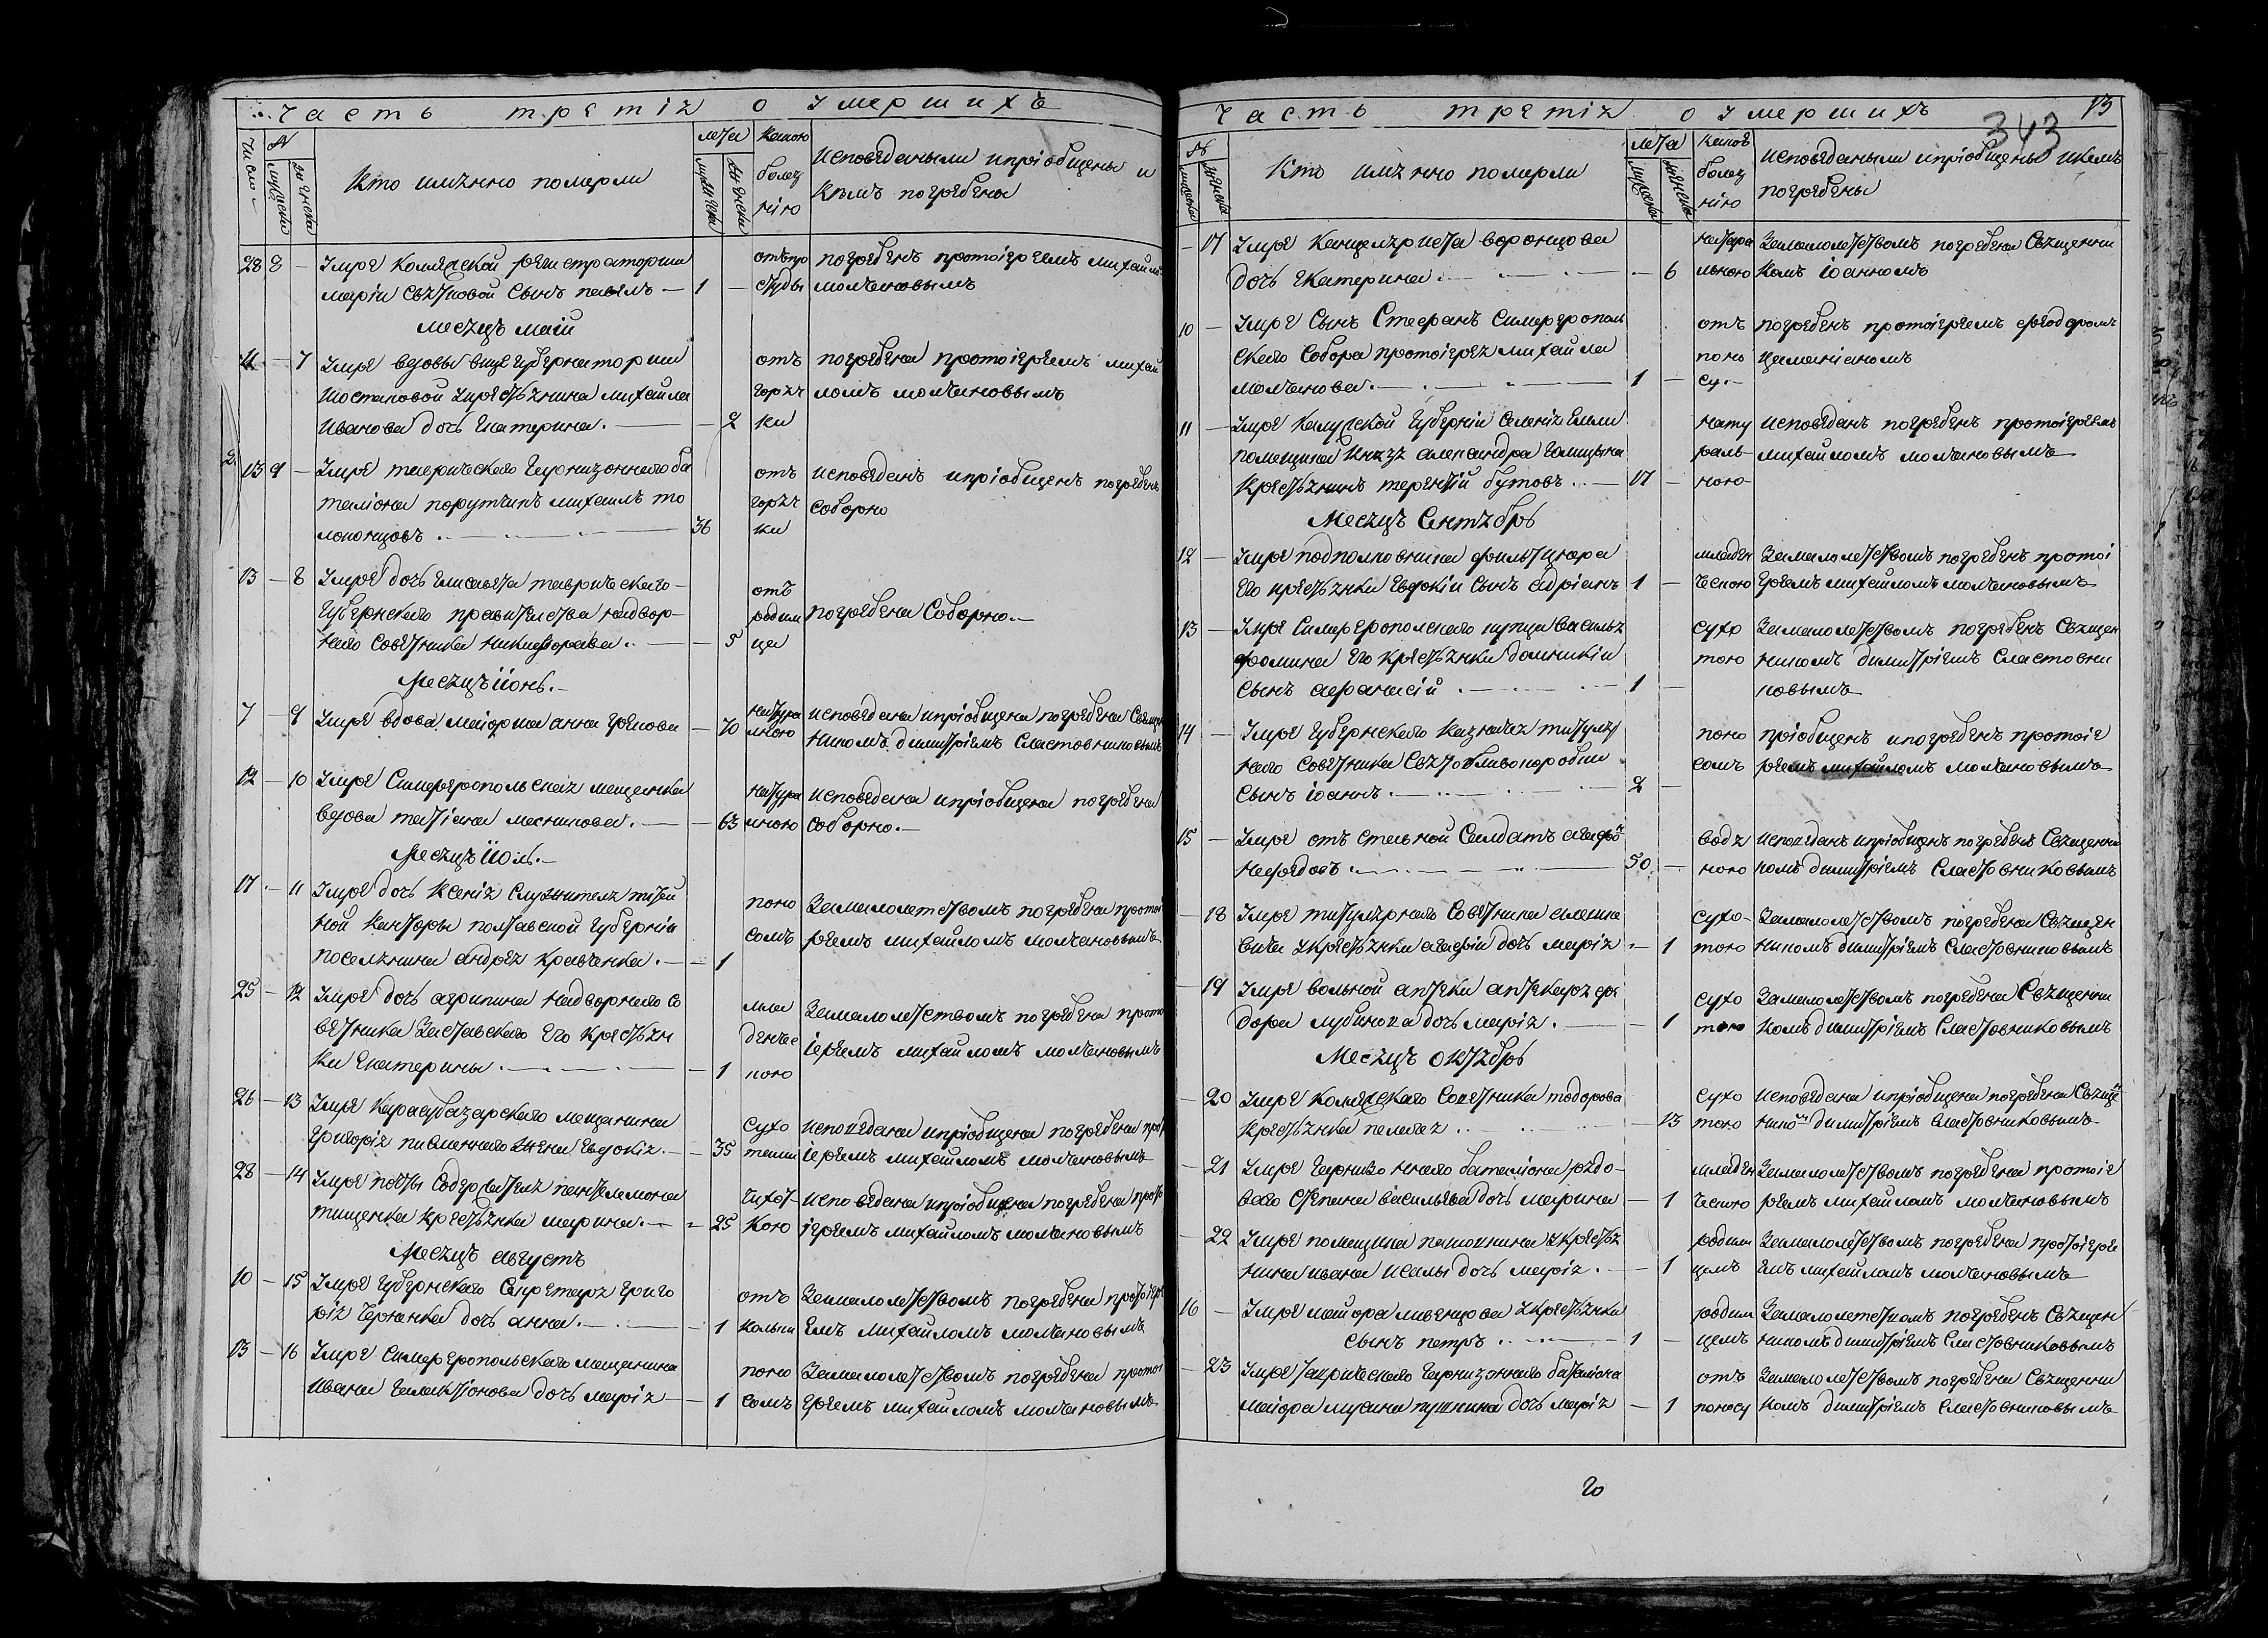 часть третія о умершихъ
число
№
мужеска
женска
Кто имянно померли
лета
мужеска
женска
какою
болез
нію
исповеданыли ипріобщены и
кемъ погребены
28 8 — умре колижской регистраторши
маріи святновой сынъ павелъ — 1 —
отъпро
студы
погребенъ протоіереемъ михаило
молчановымъ
месяцъ маій
11 — 7 умре вдовы вице губернаторши
Шостаковой укрестьянина михаила
иванова дочь екатерина. — 2
отъ
горяч
ки
погребена протоіереемъ михаи
ломъ молчановымъ
13 9 — умре таврическаго гарнизоннаго ба
таліона порутчикъ михаилъ то
локонцовъ 36
отъ
горяч
ки
исповеданъ ипріобщенъ погребенъ
соборно
13 — 8 умре дочь елисавета таврическаго
губернскаго правительства надвор-
наго советника никифорава — 5
отъ
родим
ца
погребена соборно.
Месяцъ іюнь.
7 — 9 умре вдова маіорша анна грекова — 70
натура
лною
исповедана ипріобщена погребена свящ
никомъ димитріемъ сластовниковымъ
12 — 10 умре симферопольская мещанка
вдова татіана масникова. — 63
натура
лною
исповедана ипріобщена погребена
соборно.
Месяцъ іюль.
17 — 11 умре дочь ксенія служителя питей
ной канторы полтавской губерніи
поселянина андрея кравченка. — 1
поно
сомъ
замалолетствомъ погребена протої
реемъ михаиломъ молчановымъ
25 — 12 умре дочь агрипина надворнаго со
ветника заставскаго его крестьян
ки екатерины. — 1
мла
денчес
кою
замалолетствомъ погребена прото
іереемъ михаиломъ молчановымъ
26 — 13 умре карасубазарскаго мещанина
григорія писменнаго жена евдокія. — 35
сухо
тами
исповедана ипріобщена погребена прот
іереемъ михаиломъ молчановымъ
28 — 14 умре почты содержателя пантелемона
тищенка крестьянка марина. — 25
чихот-
кою
исповедана ипріобщена погребена прото
іереемъ михаиломъ молчановымъ
Месяцъ августъ
10 — 15 умре губернскаго секретаря григо
рія чернанка дочь анна. — 1
отъ
кольки
замалолетствомъ погребена протоіере
емъ михаиломъ молчановымъ
13 — 16 умре симферопольскаго мещанина
ивана галактіонова дочь марія — 1
поно
сомъ
замалолетствомъ погребена протої
ереемъ михаиломъ молчановымъ
часть третія о умершихъ 13
343
№
мужеска
женска
Кто имянно померли
лета
мужеска
женска
какою
болез
нію
исповеданыли ипріобщены икемъ
погребены
— 17 умре канцеляриста воронцова
дочь екатерина. — 6
натура
льною
замалолетствомъ погребена священни
комъ іоанномъ
10 — умре сынъ стефанъ симферополь
скаго собора протоіерея михаила
молчанова. 1 —
отъ
поно
су.
погребенъ протоіереемъ феодоромъ
цаманіаномъ
11 — умре калужской губерніи селенія
помещика князя александра галицына
крестьянинъ терентій бутовъ . — 17 —
нату
раль-
ною
исповеданъ погребенъ протоіереемъ
михаиломъ молчановымъ
Месяцъ сентябрь
12 — умре подполковника фильтцнера
его крестьянки евдокіи сынъ адріанъ 1 —
младен
ческою
замалолетствомъ погребенъ протоі
ереемъ михаиломъ молчановымъ
13 — умре симферопольскаго купца василья
фомина его крестьянки домникіи
сынъ афанасій . 1 —
сухо
тою
замалолетствомъ погребенъ священ
никомъ димитріемъ сластовни
ковымъ
14 — умре губернскаго казначея титуля
наго советника святобливокоробки
сынъ іоаннъ. 2 —
поно
сомъ
пріобщенъ ипогребенъ протоіе
реемъ михаиломъ молчановымъ
15 — умре отъ ставной салдатъ агафонъ
нефедовъ 50. —
водя
ною
исповеданъ ипріобщенъ погребенъ священни
комъ димитріемъ сластовниковымъ
— 18 умре титулярнаго советника
укрестьянки агафіи дочь марія — 1
сухо-
тою
замалолетствомъ погребена священ
никомъ димитріемъ сластовниковымъ
— 19 умре вольной аптеки аптекаря фе
дора дочь марія. — 1
сухо
тою
замалолетствомъ погребена священни
комъ димитріемъ сластовниковымъ
Месяцъ октябрь
— 20 умре колижскаго советника тодорова
крестьянка пелагея — 13
сухо
тою
исповедана ипріобщена погребена свяще
никомъ димитріемъ сластовниковымъ
— 21 умре гарнизоннаго баталіона рядо-
ваго степана васильева дочь марина — 1
младен
ческою
замалолетствомъ погребена протоіе
реемъ михаиломъ молчановымъ
— 22 умре помещика укрестья
нина ивана дочь марія. — 1
родим
цемъ
замалолетствомъ погребена протоіере
емъ михаиломъ молчановымъ
16 — умре маіора ливенцова укрестьянки
сынъ петръ 1 —
родим
цемъ
замалолетствомъ погребенъ священ
никомъ димитріемъ сластовниковымъ
— 23 умре таврическаго гарнизоннаго баталіона
маіора мусина пушкина дочь марія — 1
отъ
поносу
замалолетствомъ погребена священни
комъ димитріемъ сластовниковымъ
20